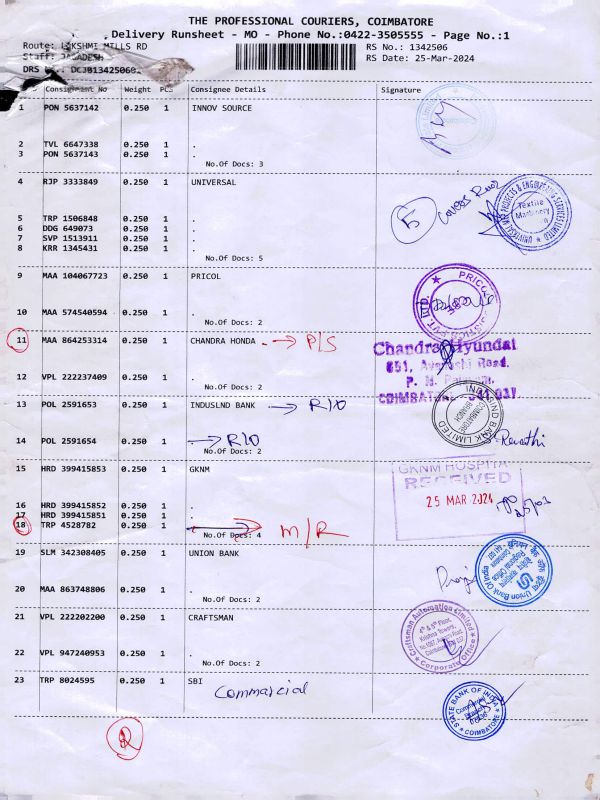 THE PROFESSIONAL COURIERS, COIMBATORE
Delivery Runsheet - MO - Phone No.:0422-3505555 - Page No.:1
Route: LAKSHMI MILLS RD
RS No.: 1342506
Staff: JAGADESH
RS Date: 25-Mar-2024
DRS
Consignment No Weight PCS Consignee Details Signature
1 PON 5637142 0.250 1 INNOV SOURCE
2 TVL 6647338 0.250 1 .
3 PON 5637143 0.250 1 .
No.Of Docs: 3
4 RJP 3333849 0.250 1 UNIVERSAL
5
Textile Machinery
5 TRP 1506848 0.250 1 .
6 DDG 649073 0.250 1 .
7 SVP 1513911 0.250 1 .
8 KRR 1345431 0.250 1 .
No.Of Docs: 5
9 MAA 104067723 0.250 1 PRICOL
PRICOL
10 MAA 574540594 0.250 1 .
No.Of Docs: 2
11 MAA 864253314 0.250 1 CHANDRA HONDA . → P/S
Chandra Hyundai
851, Avanashi Road.
12 VPL 222237409 0.250 1 .
No.Of Docs: 2
COIMBATORE - 641 037
13 POL 2591653 0.250 1 INDUSLND BANK → R/O
INDUSIND BANK LIMITED
COIMBATORE BRANCH
14 POL 2591654 0.250 1 → R/O
No.Of Docs: 2
Revathi
15 HRD 399415853 0.250 1 GKNM
GKNM HOSPITAL
RECEIVED
25 MAR 2024
16 HRD 399415852 0.250 1 .
17 HRD 399415851 0.250 1 .
18 TRP 4528782 0.250 1 → M/R
No.Of Docs: 4
19 SLM 342308405 0.250 1 UNION BANK
Union Bank Of India
20 MAA 863748806 0.250 1 .
No.Of Docs: 2
21 VPL 222202200 0.250 1 CRAFTSMAN
Craftsman Automation Limited
4th & 5th Floor,
Krishna Towers,
* Corporate Office *
22 VPL 947240953 0.250 1 .
No.Of Docs: 2
23 TRP 8024595 0.250 1 SBI
Commercial
STATE BANK OF INDIA
COIMBATORE